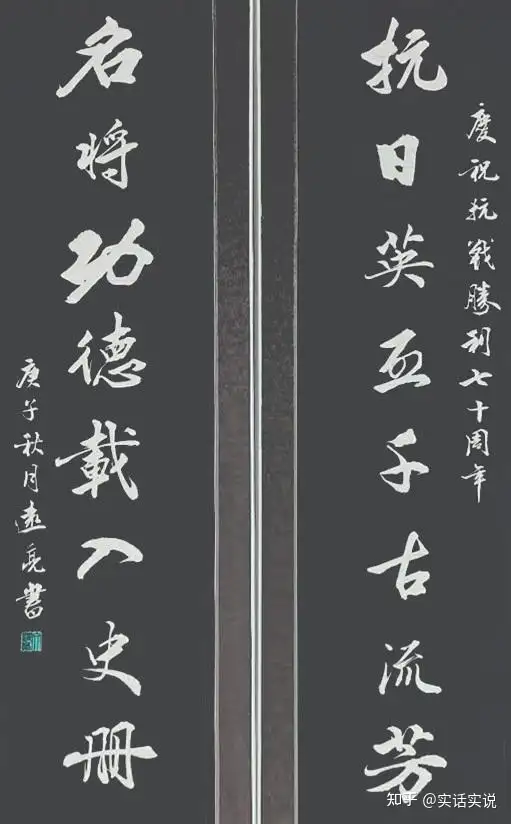 慶祝抗戰勝利七十周年
抗日英千古流芳
名将功德載入史冊
庚子秋月遠亮書
知乎 @实话实说